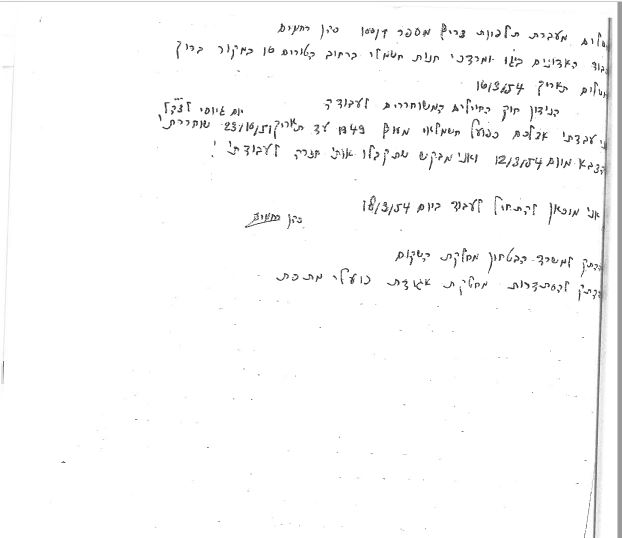 מעברת תלפיות צריף מספר 100/ד כהן רחמים
כבוד האדונים ומרדכי חנות חשמלי ברחוב הטורים 16 במקור ברוך
תאריך 16/3/54
הנידון חוק החיילים המשוחררים לעבודה
יום גיוסי לצהל
אני עבדתי אצלכם כפועל חשמלאי 1949 עד תאריך 23/10/51 שוחררתי
מהצבא מיום 12/3/54 ואני מבקש שתקבלו אותי חזרה לעבודתי !
אני מוכאן להתחיל לעבוד ביום 18/3/54
כהן רחמים
העתק למשרד הבטחון מחלקת השקום
העתק להסתדרות מחלקת אגודת פועלי מתכת